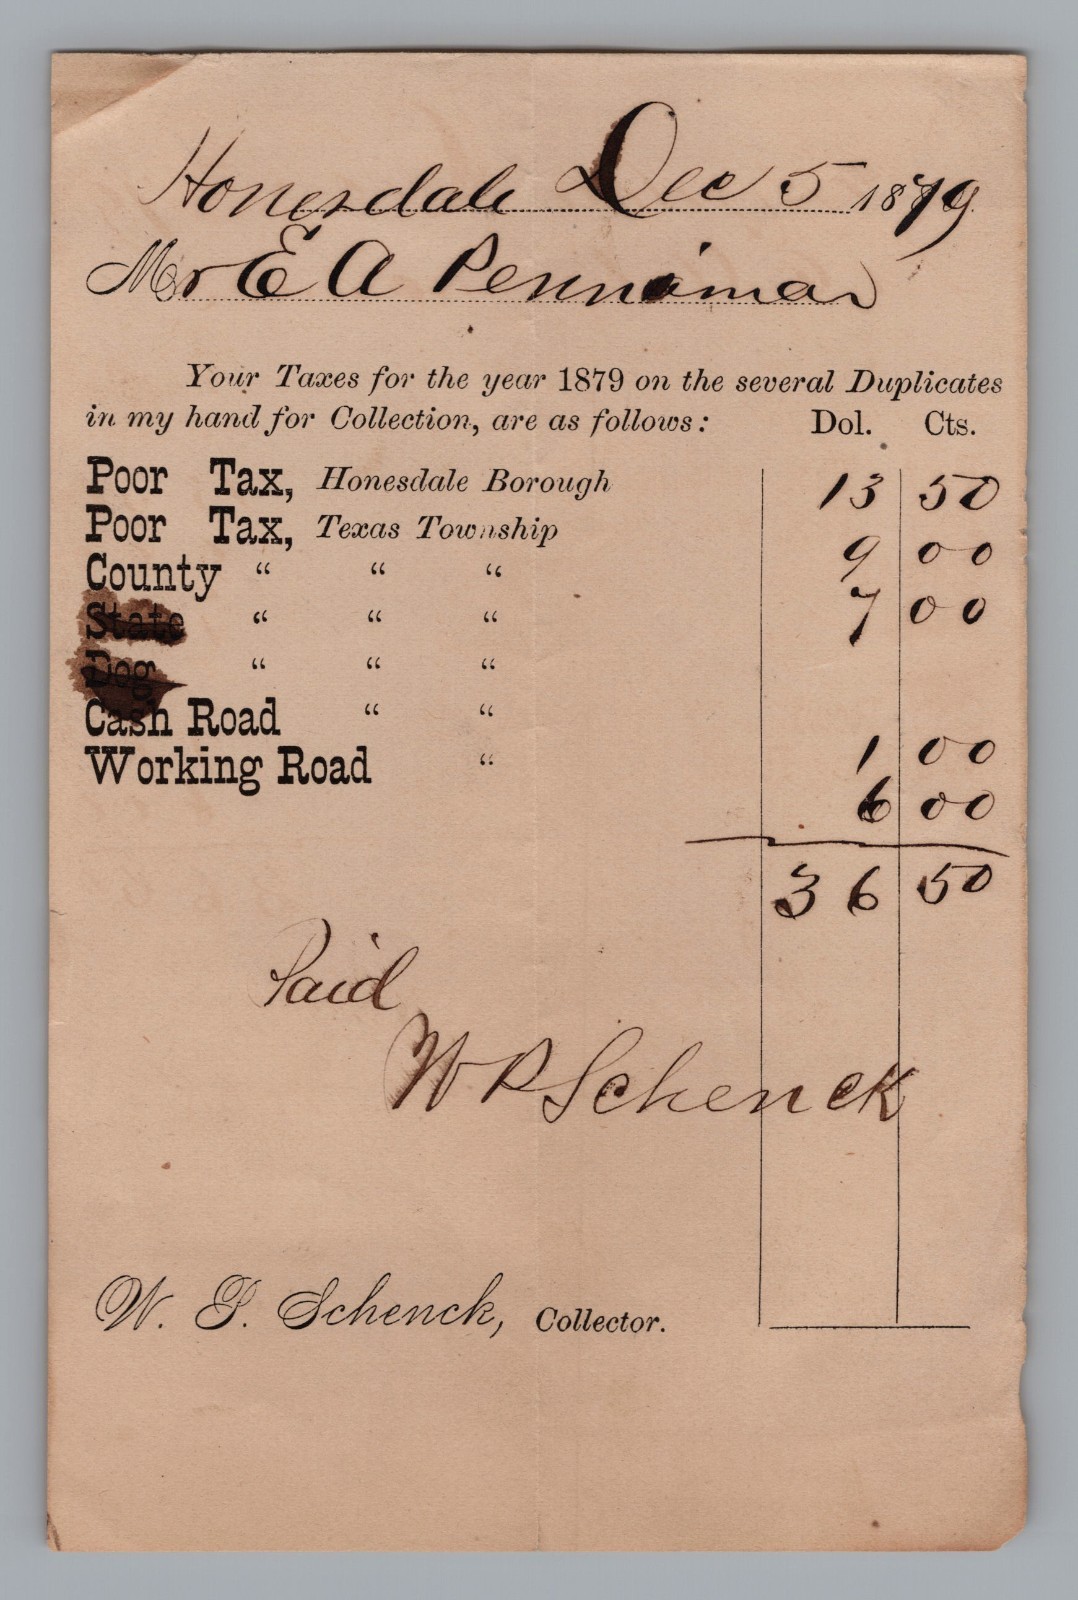 Honesdale Dec 5 1879
Mr E A Penniman
Your Taxes for the year 1879 on the several Duplicates
in my hand for Collection, are as follows: Dol. Cts.
Poor Tax, Honesdale Borough 13 50
Poor Tax, Texas Township 9 00
County “ “ “ 7 00
State “ “ “
Dog “ “ “
Cash Road “ “ 1 00
Working Road “ 6 00
36 50
Paid
W P Schenck
W. P. Schenck, Collector.